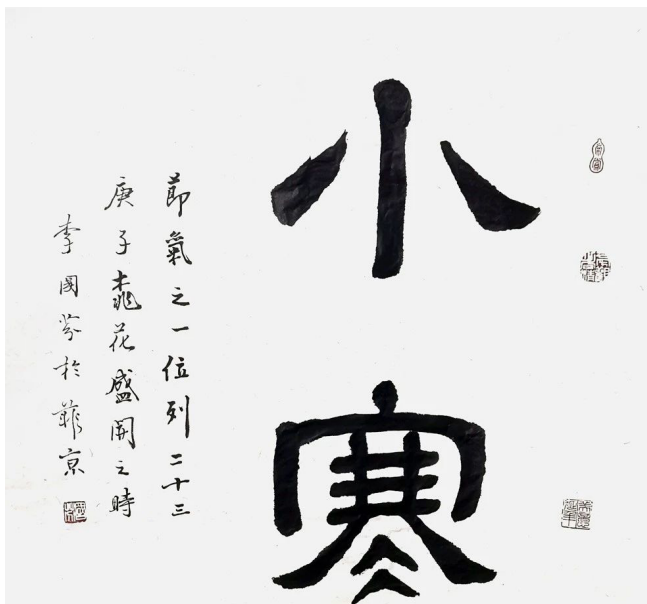 小寒
節氣之一位列二十三
庚子桃花盛開之時
李國芬於菲京